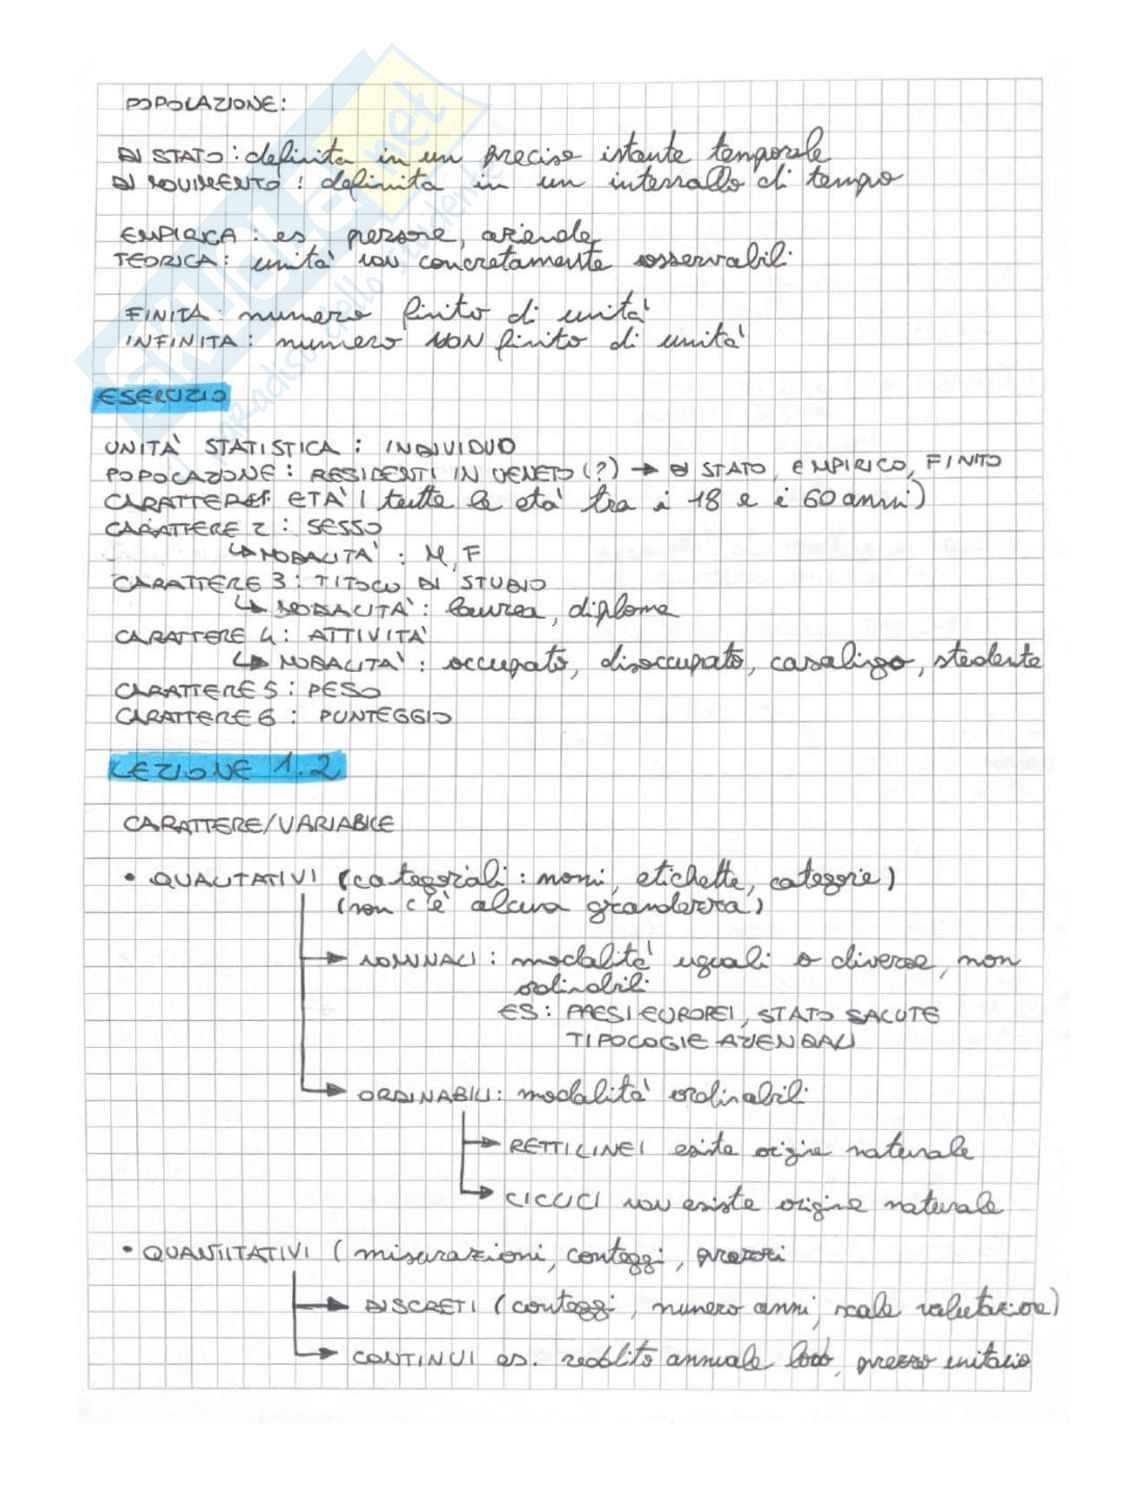 POPOLAZIONE:
DI STATO: definita in un preciso istante temporale
DI MOVIMENTO: definita in un intervallo di tempo
EMPIRICA: es persone, aziende
TEORICA: unità NON concretamente osservabili
FINITA: numero finito di unità
INFINITA: numero NON finito di unità
ESERCIZIO
UNITÀ STATISTICA: INDIVIDUO
POPOLAZIONE: RESIDENTI IN VENETO (?) → DI STATO, EMPIRICO, FINITO
CARATTERE 1: ETÀ (tutte le età tra i 18 e i 60 anni)
CARATTERE 2: SESSO
↳ MODALITÀ: M, F
CARATTERE 3: TITOLO DI STUDIO
↳ MODALITÀ: laurea, diploma
CARATTERE 4: ATTIVITÀ
↳ MODALITÀ: occupato, disoccupato, casalingo, studente
CARATTERE 5: PESO
CARATTERE 6: PUNTEGGIO
LEZIONE 1.2
CARATTERE/VARIABILE
• QUALITATIVI (categoriali: nomi, etichette, categorie)
(non c'è alcuna grandezza)
→ NOMINALI: modalità uguali o diverse, non
ordinabili
ES: PAESI EUROPEI, STATO SALUTE
TIPOLOGIE AZIENDALI
→ ORDINABILI: modalità ordinabili
→ RETTILINEI esiste origine naturale
→ CICLICI NON esiste origine naturale
• QUANTITATIVI (misurazioni, conteggi, prezzi
→ DISCRETI (conteggi, numero anni, scale valutazione)
→ CONTINUI es. reddito annuale lordo, prezzo unitario